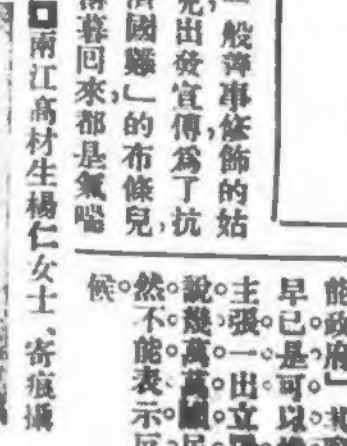 一般善事修飾的姑
出發宣傳,爲了抗
國難」的布條兒,
薄暮回來都是氣喘
南江高材生楊仁女士、寄痕攝
能政府」
早已是可以
主張一出立
說幾萬萬國民
然不能表示反
候